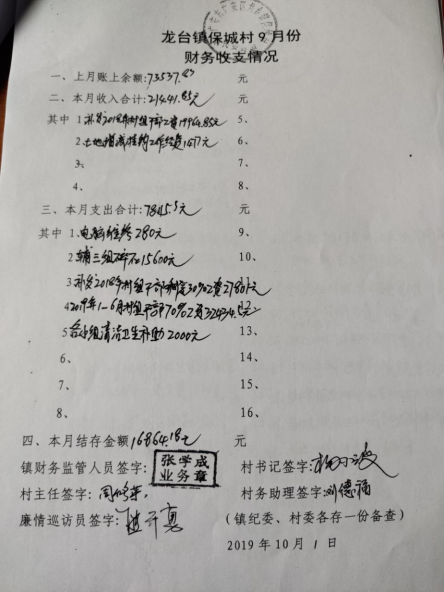 龙台镇保城村9月份
财务收支情况
一、上月账上余额:73537.43 元
二、本月收入合计:21441.85元 元
其中 1.补发2018年村组干部工资19964.85元 5、
2.土地增减挂钩工作经费1477元 6、
3、 7、
4、 8、
三、本月支出合计:78115.5元 元
其中 1.电脑维修280元 9、
2.辅三组碎石15600元 10、
3.补发2018年村组干部30%工资27801元 11、
4.2019年1-6月村组干部70%工资32434.5元 12、
5.各小组清洁卫生补助2000元 13、
6、 14、
7、 15、
8、 16、
四、本月结存金额16864.18元 元
镇财务监管人员签字: 张学成
业务章
村书记签字:
村主任签字: 村务助理签字:刘德福
廉情巡访员签字:
(镇纪委、村委各存一份备查)
2019年10月1日